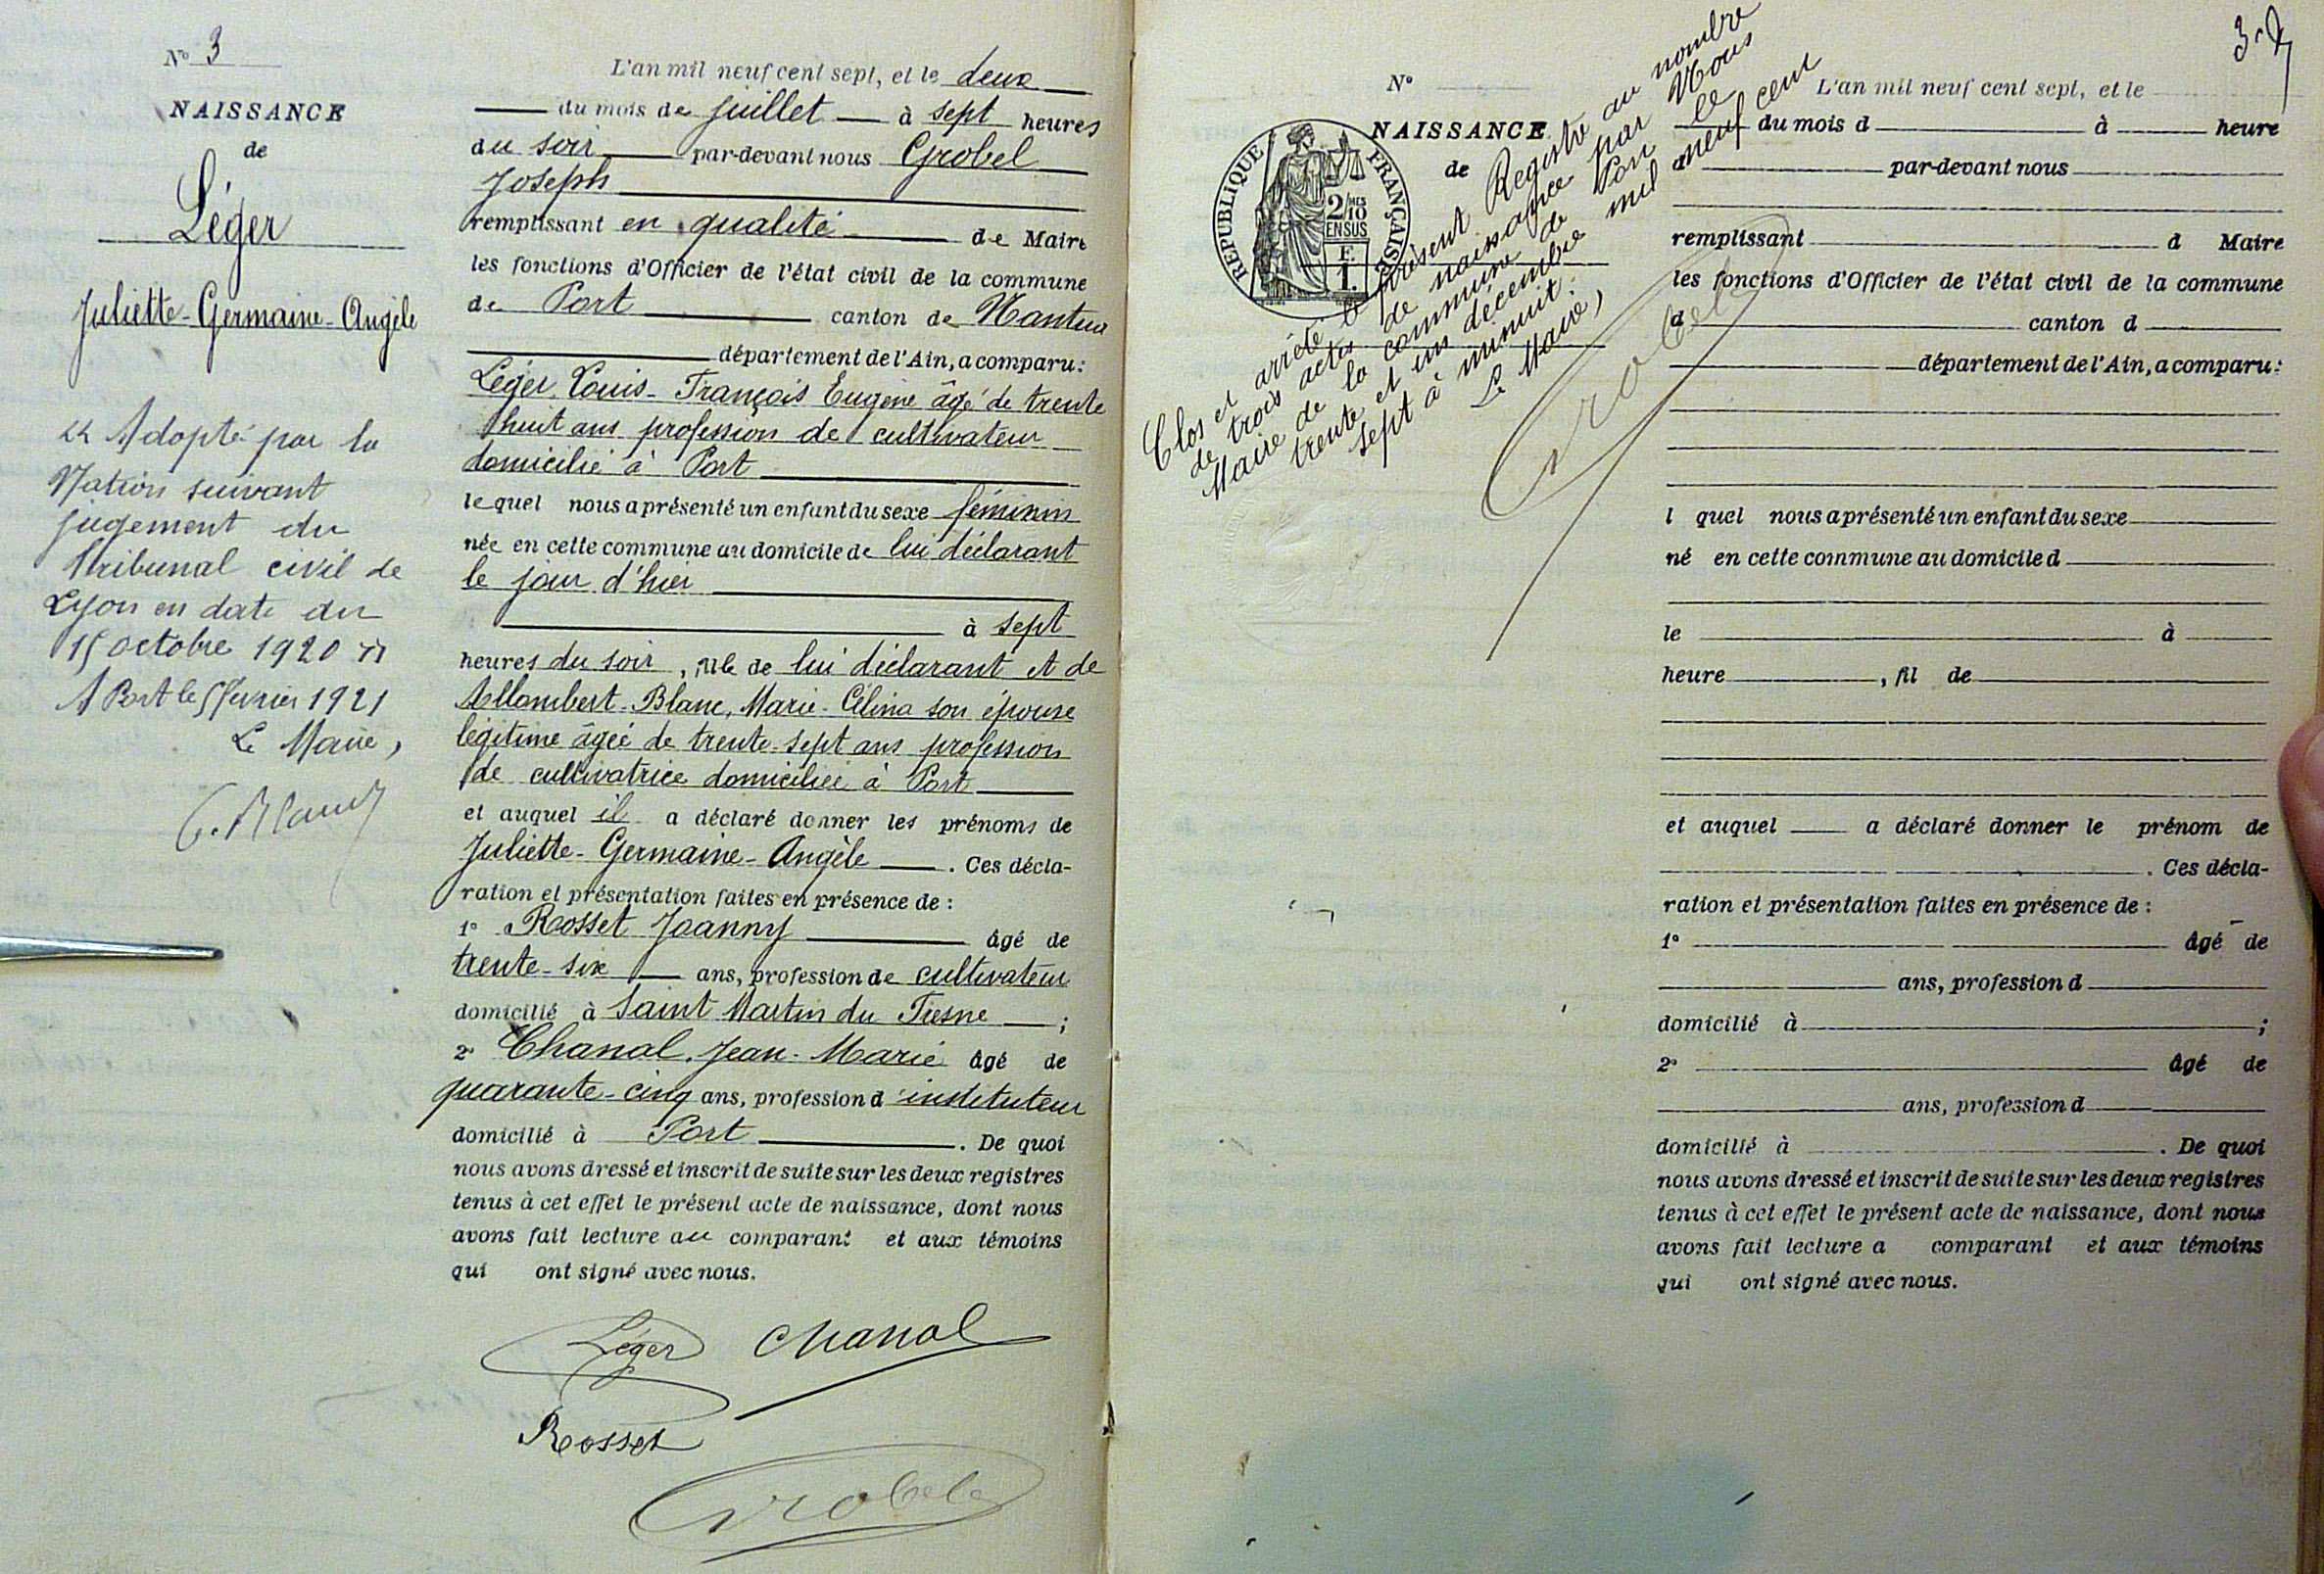 N° 3
NAISSANCE
de
Léger
Juliette-Germaine-Angèle
"Adopté par la
Nation suivant
jugement du
Tribunal civil de
Lyon en date du
15 octobre 1920"
A Port le 5 février 1921
Le Maire,
L'an mil neuf cent sept, et le deux
du mois de juillet à sept heures
du soir par-devant nous Grobel
Joseph
remplissant en qualité de Maire
les fonctions d'Officier de l'état civil de la commune
de Port canton de Nantua
département de l'Ain, a comparu:
Léger Louis-François Eugène âgé de trente
huit ans profession de cultivateur
domicilié à Port
lequel nous a présenté un enfant du sexe féminin
née en cette commune au domicile de lui déclarant
le jour d'hier
à sept
heures du soir, fille de lui déclarant et de
Allombert-Blanc, Marie-Célina son épouse
légitime âgée de trente-sept ans profession
de cultivatrice domiciliée à Port
et auquel il a déclaré donner les prénoms de
Juliette-Germaine-Angèle. Ces décla-
ration et présentation faites en présence de:
1° Rosset Joanny âgé de
trente-six ans, profession de cultivateur
domicilié à Saint Martin du Fresne;
2° Chanal Jean-Marie âgé de
quarante-cinq ans, profession d'instituteur
domicilié à Port. De quoi
nous avons dressé et inscrit de suite sur les deux registres
tenus à cet effet le présent acte de naissance, dont nous
avons fait lecture au comparant et aux témoins
qui ont signé avec nous.
Léger Chanal
Rosset
Grobel
N°
NAISSANCE
de
REPUBLIQUE FRANÇAISE
2/10MES
EN SUS
F.
1.
Clos et arrêté le présent Registre au nombre
de trois actes de naissance par Nous
Maire de la commune de Port le
trente et un décembre mil neuf cent
sept à minuit.
Le Maire,
Grobel
L'an mil neuf cent sept, et le
du mois d à heure
par-devant nous
remplissant d Maire
les fonctions d'Officier de l'état civil de la commune
d canton d
département de l'Ain, a comparu:
l quel nous a présenté un enfant du sexe
né en cette commune au domicile d
le à
heure, fil de
et auquel a déclaré donner le prénom de
. Ces décla-
ration et présentation faites en présence de:
1° âgé de
ans, profession d
domicilié à ;
2° âgé de
ans, profession d
domicilié à . De quoi
nous avons dressé et inscrit de suite sur les deux registres
tenus à cet effet le présent acte de naissance, dont nous
avons fait lecture a comparant et aux témoins
qui ont signé avec nous.